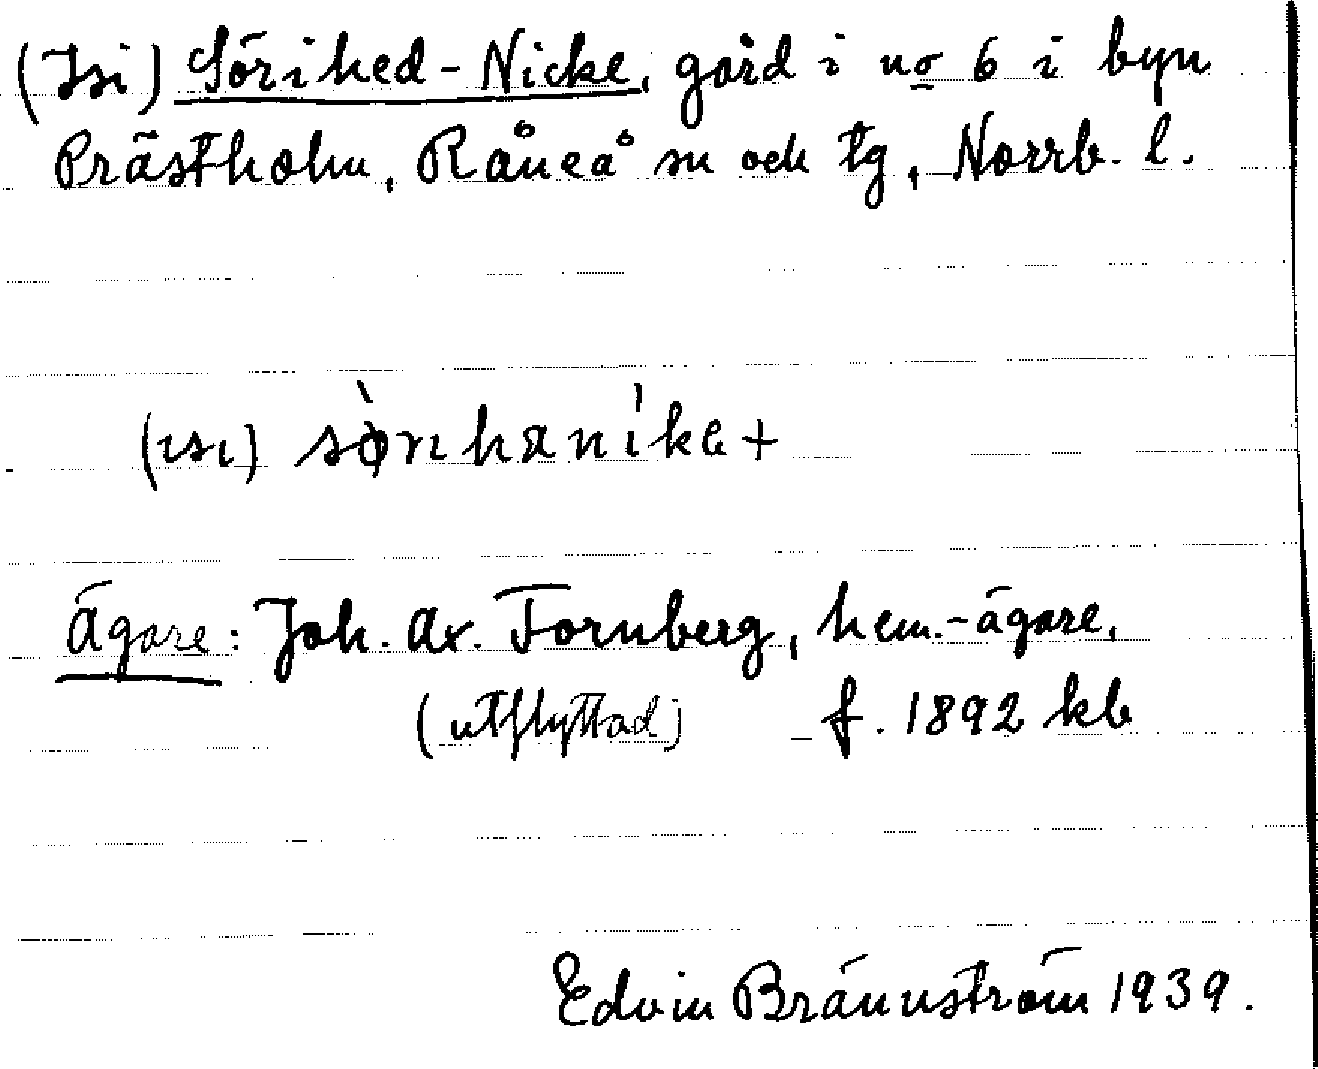 (Isi) Sörihed-Nicke, gård i no 6 i byn
Prästholm, Råneå sn och tg, Norrb. l.
(ısı) sørıhanıke+
Ägare: Joh. Ax. Fornberg, hem.-ägare,
(utflyttad) f. 1892 kb
Edvin Brännström 1939.